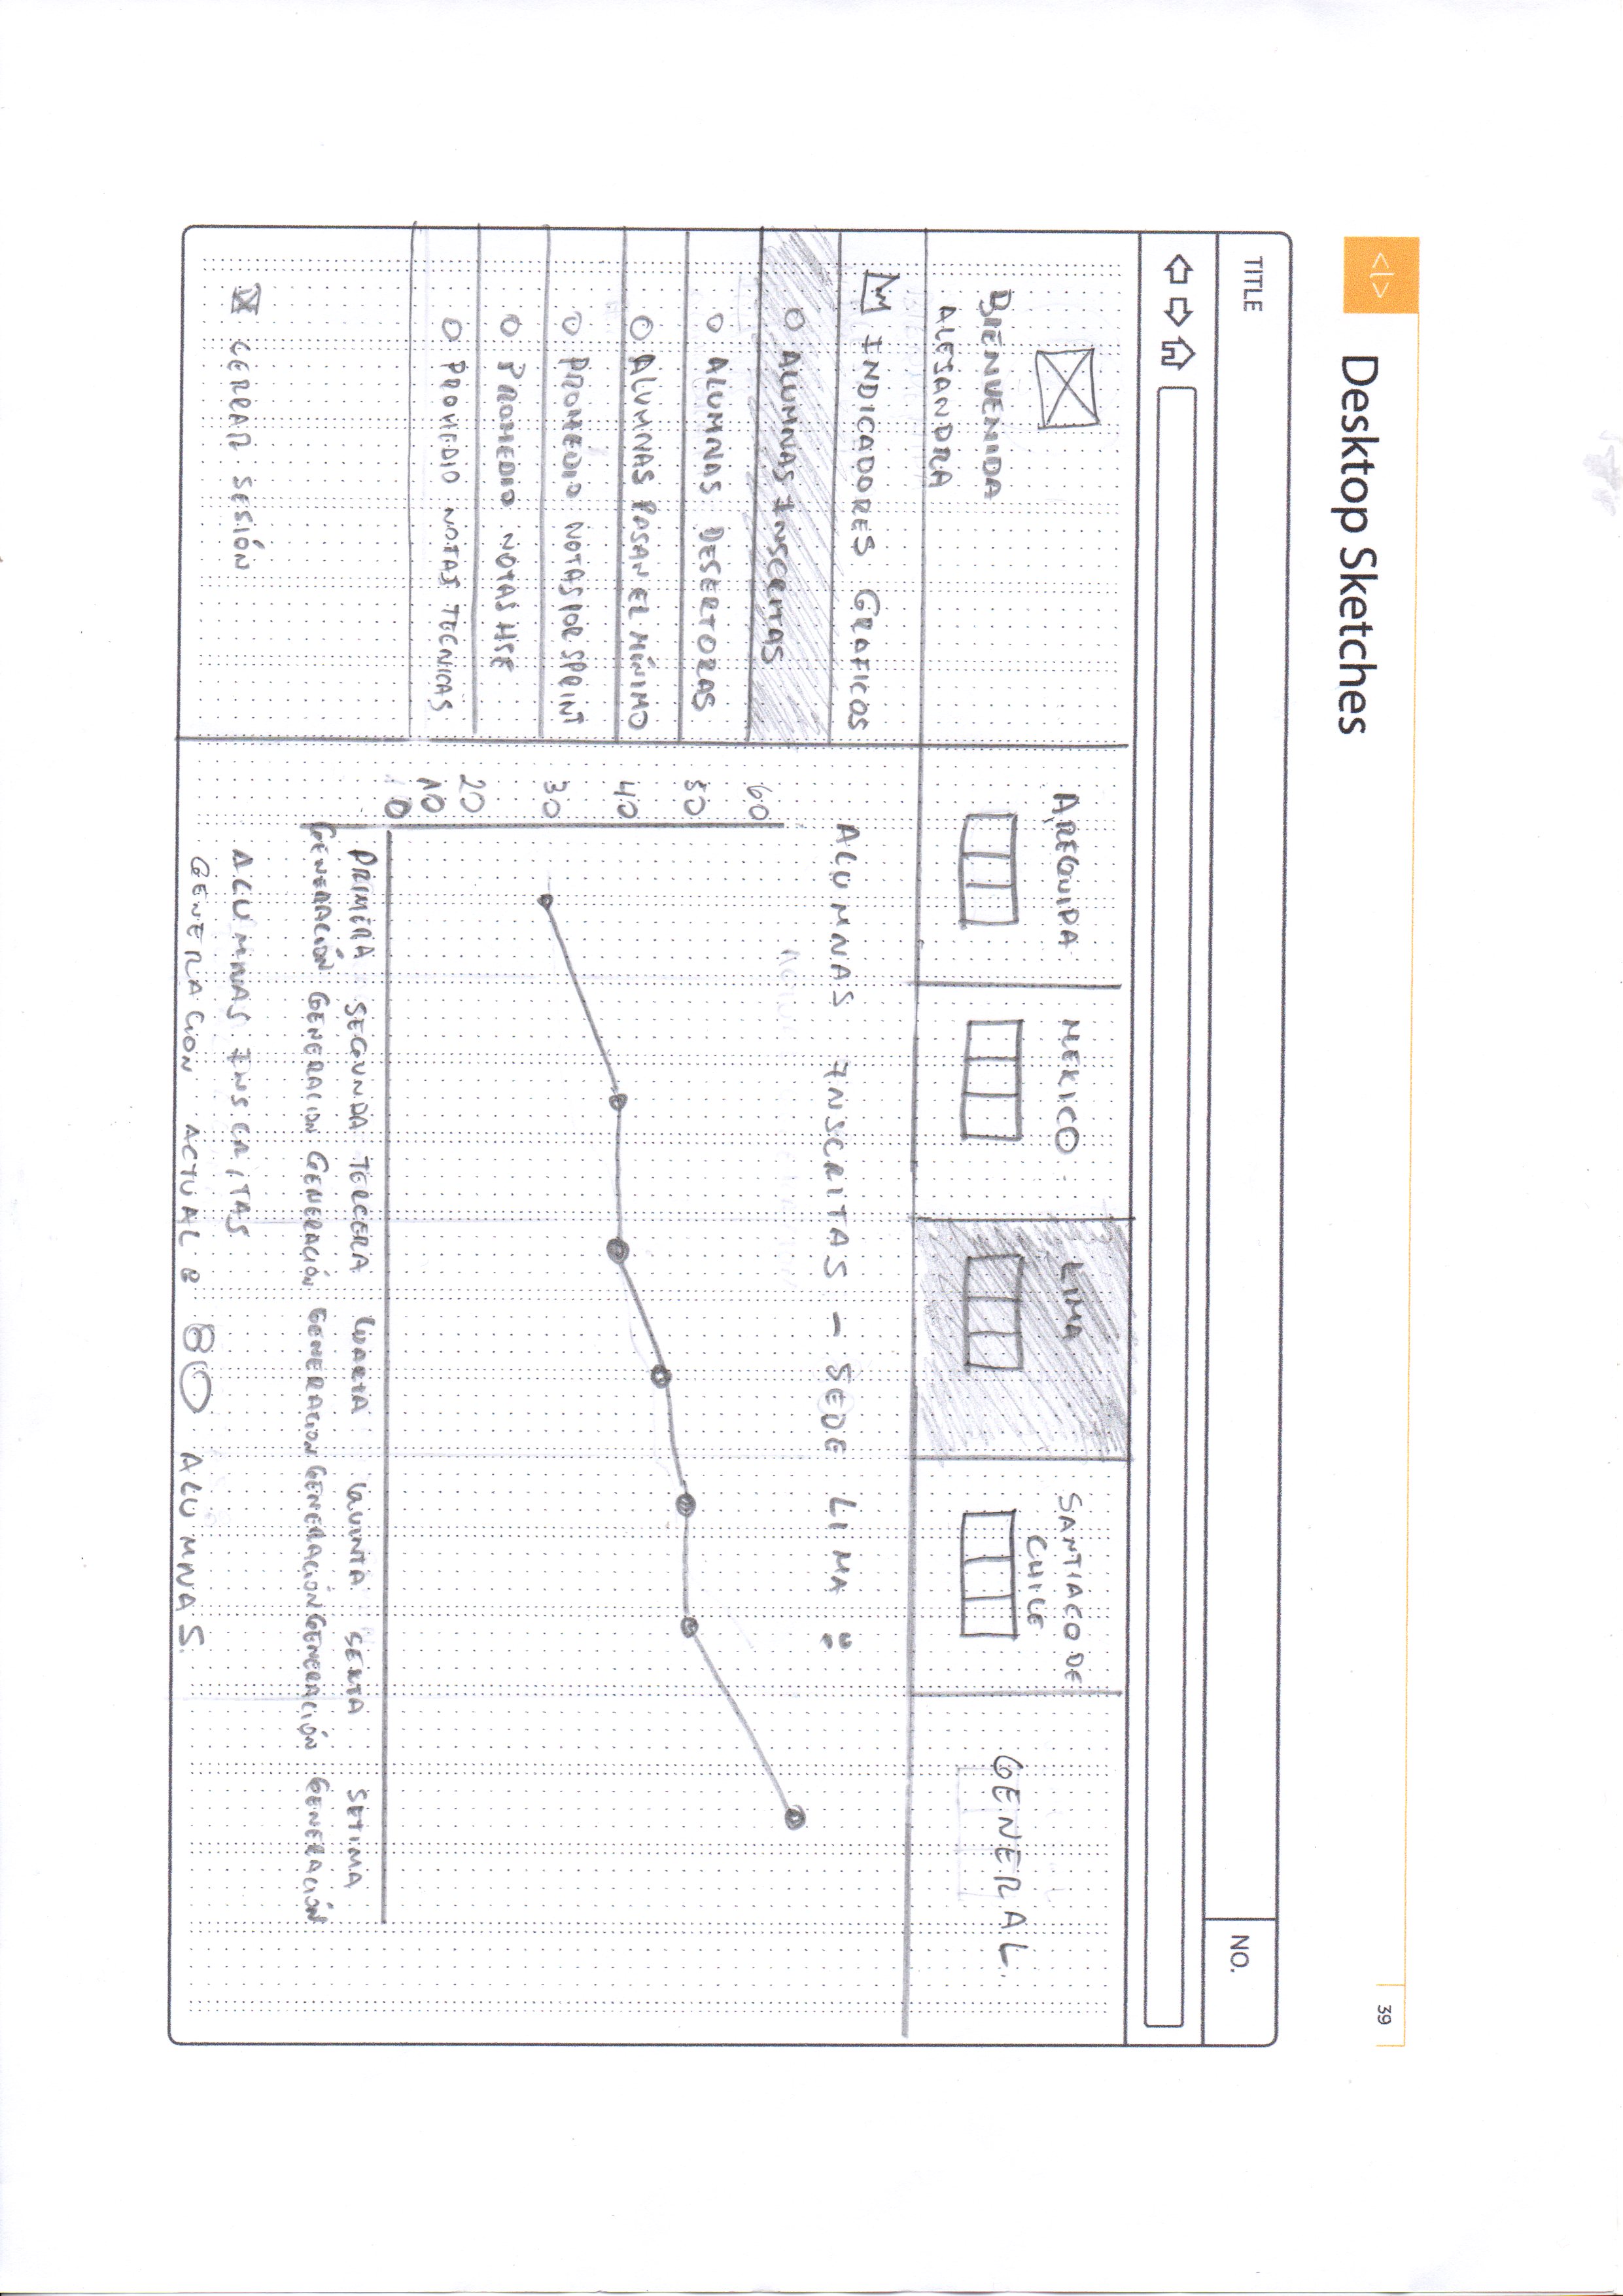 <|>
Desktop Sketches
39
TITLE
NO.
BIENVENIDA
ALESANDRA
INDICADORES GRAFICOS
ALUMNAS INSCRITAS
ALUMNAS DESERTORAS
ALUMNAS PASAN EL MÍNIMO
PROMEDIO NOTAS POR SPRINT
PROMEDIO NOTAS HSE
PROMEDIO NOTAS TECNICAS
CERRAR SESIÓN
AREQUIPA
MEXICO
LIMA
SANTIAGO DE
CHILE
GENERAL.
ALUMNAS INSCRITAS - SEDE LIMA :
60
50
40
30
20
10
0
PRIMERA SEGUNDA TERCERA CUARTA QUINTA SEXTA SETIMA
GENERACIÓN GENERACION GENERACIÓN GENERACION GENERACIÓN GENERACIÓN GENERACIÓN
ALUMNAS INSCRITAS
GENERACION ACTUAL : 80 ALUMNAS.